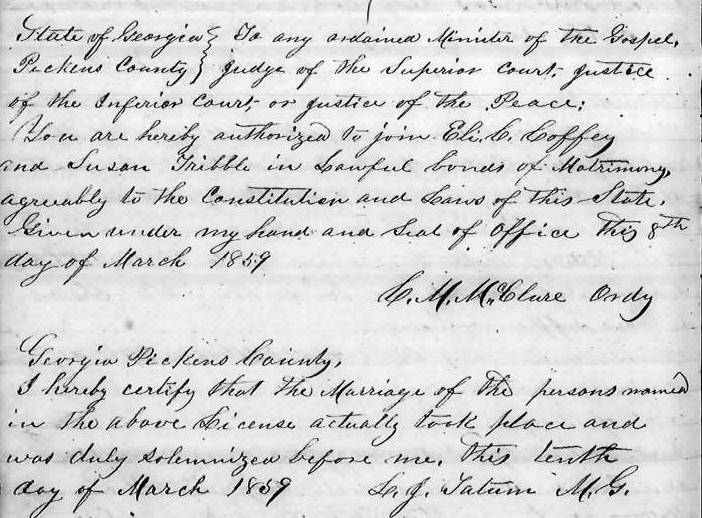 State of Georgia } To any ordained Minister of the Gospel,
Pickens County } judge of the Superior court, justice
of the Inferior court, or justice of the Peace:
You are hereby authorized to join Eli. C. Coffey
and Susan Tribble in Lawful bonds of Matrimony,
agreeably to the Constitution and Laws of this State.
Given under my hand and Seal of office this 8th
day of March 1859
C. M. McClure Ordy
Georgia Pickens County,
I hereby certify that the Marriage of the persons named
in the above License actually took place and
was duly solemnized before me, this tenth
day of March 1859 L. J. Tatum M. G.